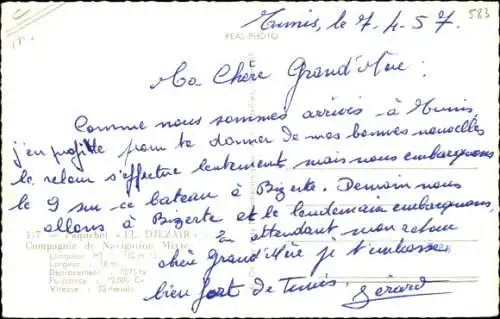 583
Tunis, le 7.4.57
REAL-PHOTO
Ma Chère Grand'Mère :
Comme nous sommes arrivés à Tunis
j'en profite pour te donner de mes bonnes nouvelles
le retour s'effectue lentement, mais nous embarquons
le 9 sur ce bateau à Bizerte. Demain nous
allons à Bizerte et le lendemain embarquons,
157 - Paquebot « EL DJEZAIR »
En attendant mon
Compagnie de Navigation Mixte
chère Grand'Mère je t'embrasse
Longueur HT :
Largeur : 18 m.
Déplacement : 7075 tx
Puissance :
Vitesse : nœuds
bien fort de Tunis. Gérard